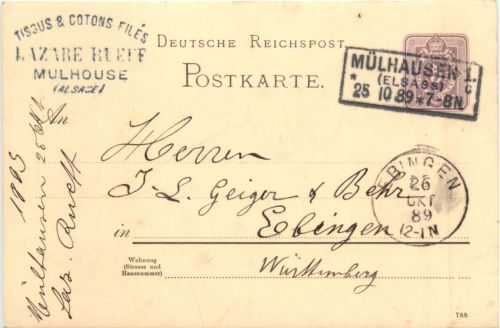 TISSUS & COTONS FILÉS
LAZARE RUEFF
MULHOUSE
(ALSACE)
DEUTSCHE REICHSPOST
POSTKARTE.
MÜLHAUSEN 1.
(ELSASS) c
* 25 10 89 * 7-8N
An
Herren
J. L. Geiger & Behr
in Ebingen
Württemberg
Wohnung
(Strasse und
Hausnummer)
EBINGEN
26
OKT
89
12-1N
1893
Mülhausen 25 Okt
Laz. Rueff
788